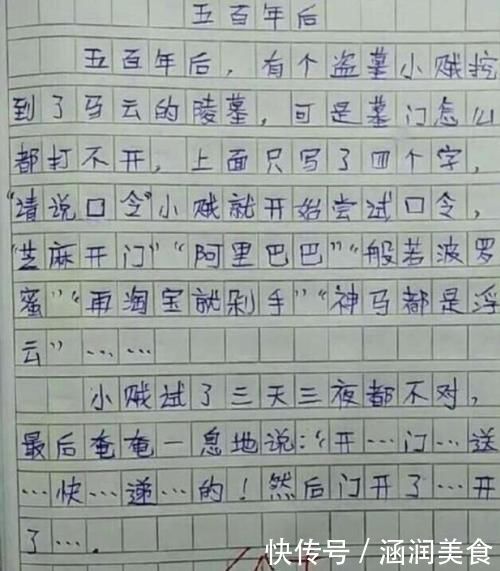 五百年后
五百年后，有个盗墓小贼挖
到了马云的陵墓，可是墓门怎么
都打不开，上面只写了四个字，
“请说口令”小贼就开始尝试口令，
“芝麻开门”“阿里巴巴”“般若波罗
蜜”“再淘宝就剁手”“神马都是浮
云”……
小贼试了三天三夜都不对，
最后奄奄一息地说：“开…门…送
…快…递…的！然后门开了…开
了….
快传号／涵润美食